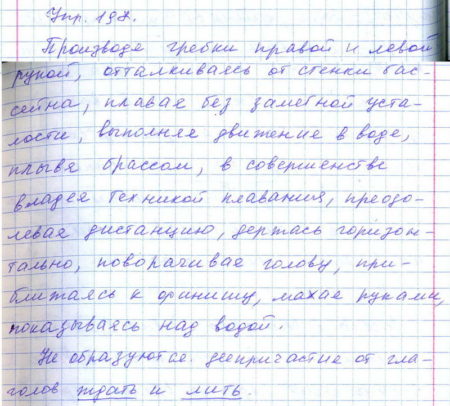 Упр. 198.
Производя гребки правой и левой
рукой, отталкиваясь от стенки бас-
сейна, плавая без заметной уста-
лости, выполняя движение в воде,
плывя брассом, в совершенстве
владея техникой плавания, преодо-
левая дистанцию, держась горизон-
тально, поворачивая голову, при-
ближаясь к финишу, махая руками,
показываясь над водой.
Не образуются деепричастие от гла-
голов ждать и лить.